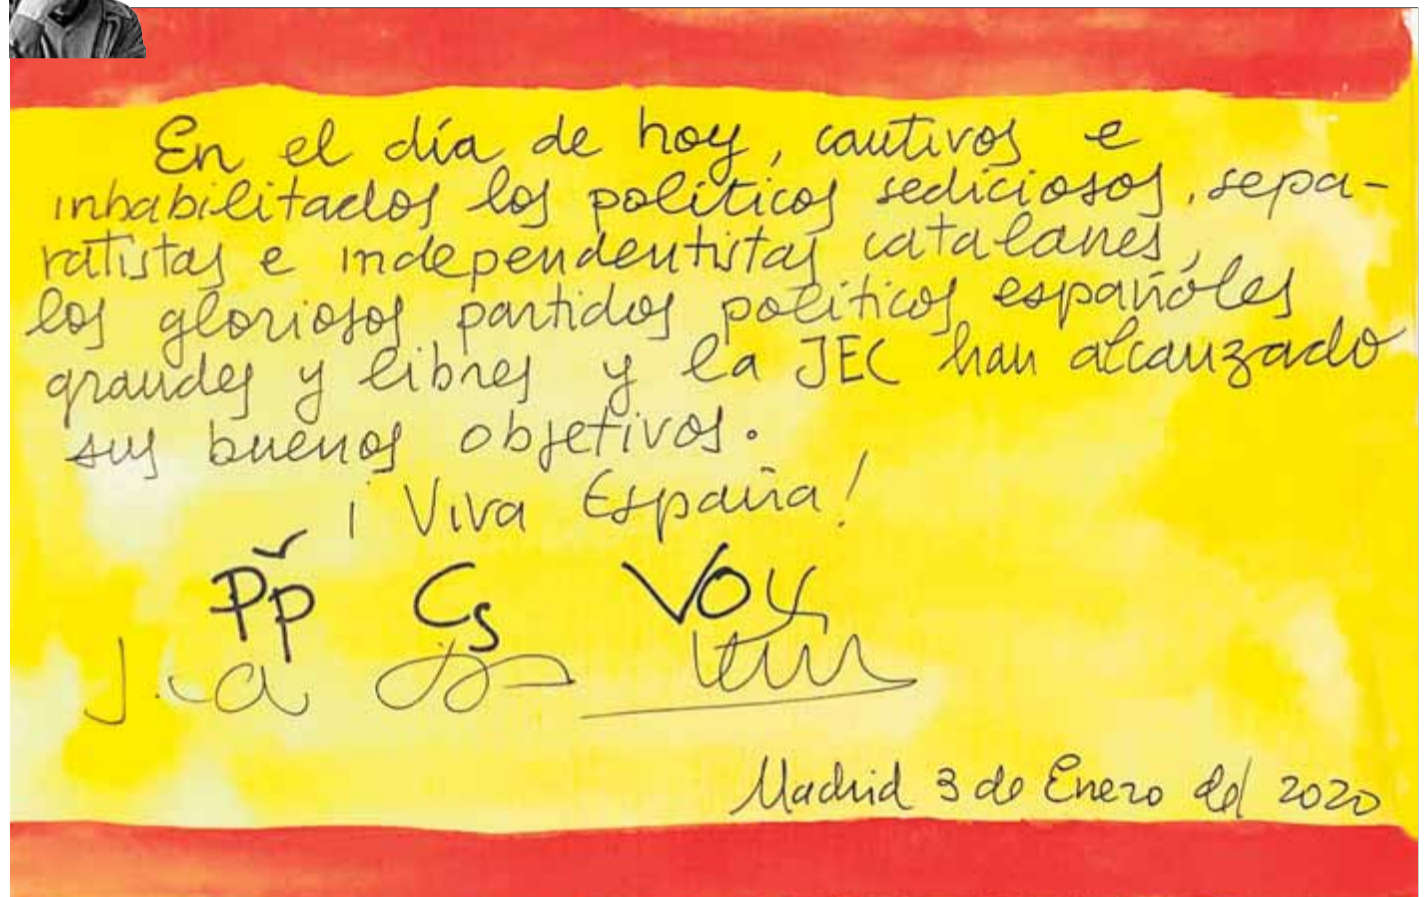 En el día de hoy, cautivos e
inhabilitados los políticos sediciosos, sepa-
ratistas e independentistas catalanes,
los gloriosos partidos políticos españoles
grandes y libres y la JEC han alcanzado
sus buenos objetivos.
¡Viva España!
Pp Cs Vox
Madrid 3 de Enero del 2020